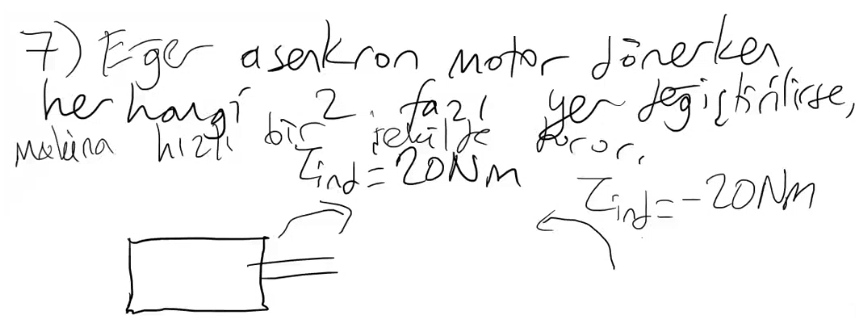 7) Eğer asenkron motor dönerken
herhangi bir 2 fazı yer değiştirilirse,
makina hızlı bir şekilde durur.
τind = 20Nm
τind = -20Nm